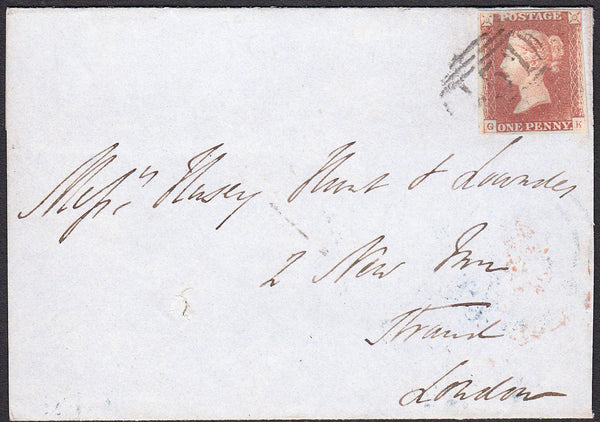 POSTAGE
G K
ONE PENNY
Messrs Husey Hunt & Lowndes
2 New Inn
Strand
London